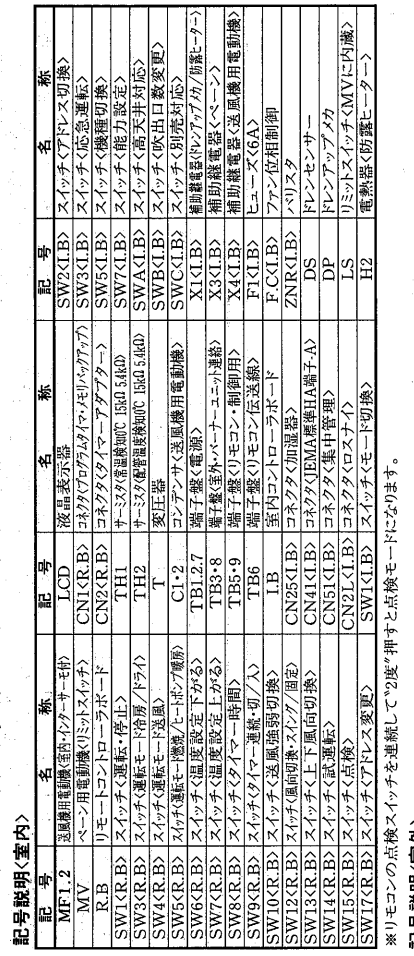 記号説明〈室内〉
記号 名称 記号 名称 記号 名称
MF1.2 送風機用電動機〈室内・インターサーモ付〉 LCD 液晶表示器 SW2〈I.B〉 スイッチ〈アドレス切換〉
MV ベーン用電動機〈リミットスイッチ〉 CN1〈R.B〉 コネクタ〈プログラムタイマ・メモリバックアップ〉 SW3〈I.B〉 スイッチ〈応急運転〉
R.B リモートコントローラボード CN2〈R.B〉 コネクタ〈タイマーアダプター〉 SW5〈I.B〉 スイッチ〈機種切換〉
SW1〈R.B〉 スイッチ〈運転・停止〉 TH1 サーミスタ〈常温検知0℃ 15kΩ 5.4kΩ〉 SW7〈I.B〉 スイッチ〈能力設定〉
SW3〈R.B〉 スイッチ〈運転モード冷房/ドライ〉 TH2 サーミスタ〈配管温度検知0℃ 15kΩ 5.4kΩ〉 SWA〈I.B〉 スイッチ〈高天井対応〉
SW4〈R.B〉 スイッチ〈運転モード送風〉 T 変圧器 SWB〈I.B〉 スイッチ〈吹出口数変更〉
SW5〈R.B〉 スイッチ〈運転モード燃焼/ヒートポンプ暖房〉 C1・2 コンデンサ〈送風機用電動機〉 SWC〈I.B〉 スイッチ〈別売対応〉
SW6〈R.B〉 スイッチ〈温度設定下がる〉 TB1.2.7 端子盤〈電源〉 X1〈I.B〉 補助継電器〈ドレンアップメカ/防露ヒーター〉
SW7〈R.B〉 スイッチ〈温度設定上がる〉 TB3・8 端子盤〈室外・バーナーユニット連絡〉 X3〈I.B〉 補助継電器〈ベーン〉
SW8〈R.B〉 スイッチ〈タイマー時間〉 TB5・9 端子盤〈リモコン・制御用〉 X4〈I.B〉 補助継電器〈送風機用電動機〉
SW9〈R.B〉 スイッチ〈タイマー連続・切/入〉 TB6 端子盤〈リモコン伝送線〉 F1〈I.B〉 ヒューズ〈6A〉
SW10〈R.B〉 スイッチ〈送風強弱切換〉 I.B 室内コントローラボード F.C〈I.B〉 ファン位相制御
SW12〈R.B〉 スイッチ〈風向切換・スイング/固定〉 CN25〈I.B〉 コネクタ〈加湿器〉 ZNR〈I.B〉 バリスタ
SW13〈R.B〉 スイッチ〈上下風向切換〉 CN41〈I.B〉 コネクタ〈JEMA標準HA端子-A〉 DS ドレンセンサー
SW14〈R.B〉 スイッチ〈試運転〉 CN51〈I.B〉 コネクタ〈集中管理〉 DP ドレンアップメカ
SW15〈R.B〉 スイッチ〈点検〉 CN2L〈I.B〉 コネクタ〈ロスナイ〉 LS リミットスイッチ〈MVに内蔵〉
SW17〈R.B〉 スイッチ〈アドレス変更〉 SW1〈I.B〉 スイッチ〈モード切換〉 H2 電熱器〈防露ヒーター〉
※リモコンの点検スイッチを連続して"2度"押すと点検モードになります。